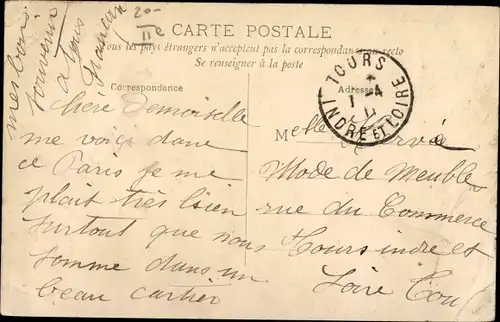 CARTE POSTALE
Tous les pays étrangers n'acceptent pas la correspondance au recto
Se renseigner à la poste
Correspondance
Adresse
mes bons
souvenir
a tous
François
20-
TOURS
1 -4
11
INDRE ET LOIRE
chere Demoiselle
me voici dans
ce Paris je me
plait très bien
surtout que nous
somme dans un
beau cartier
Melle Hervé
Mode de Meubles
rue du Commerce
Tours indre et
Loire Tou